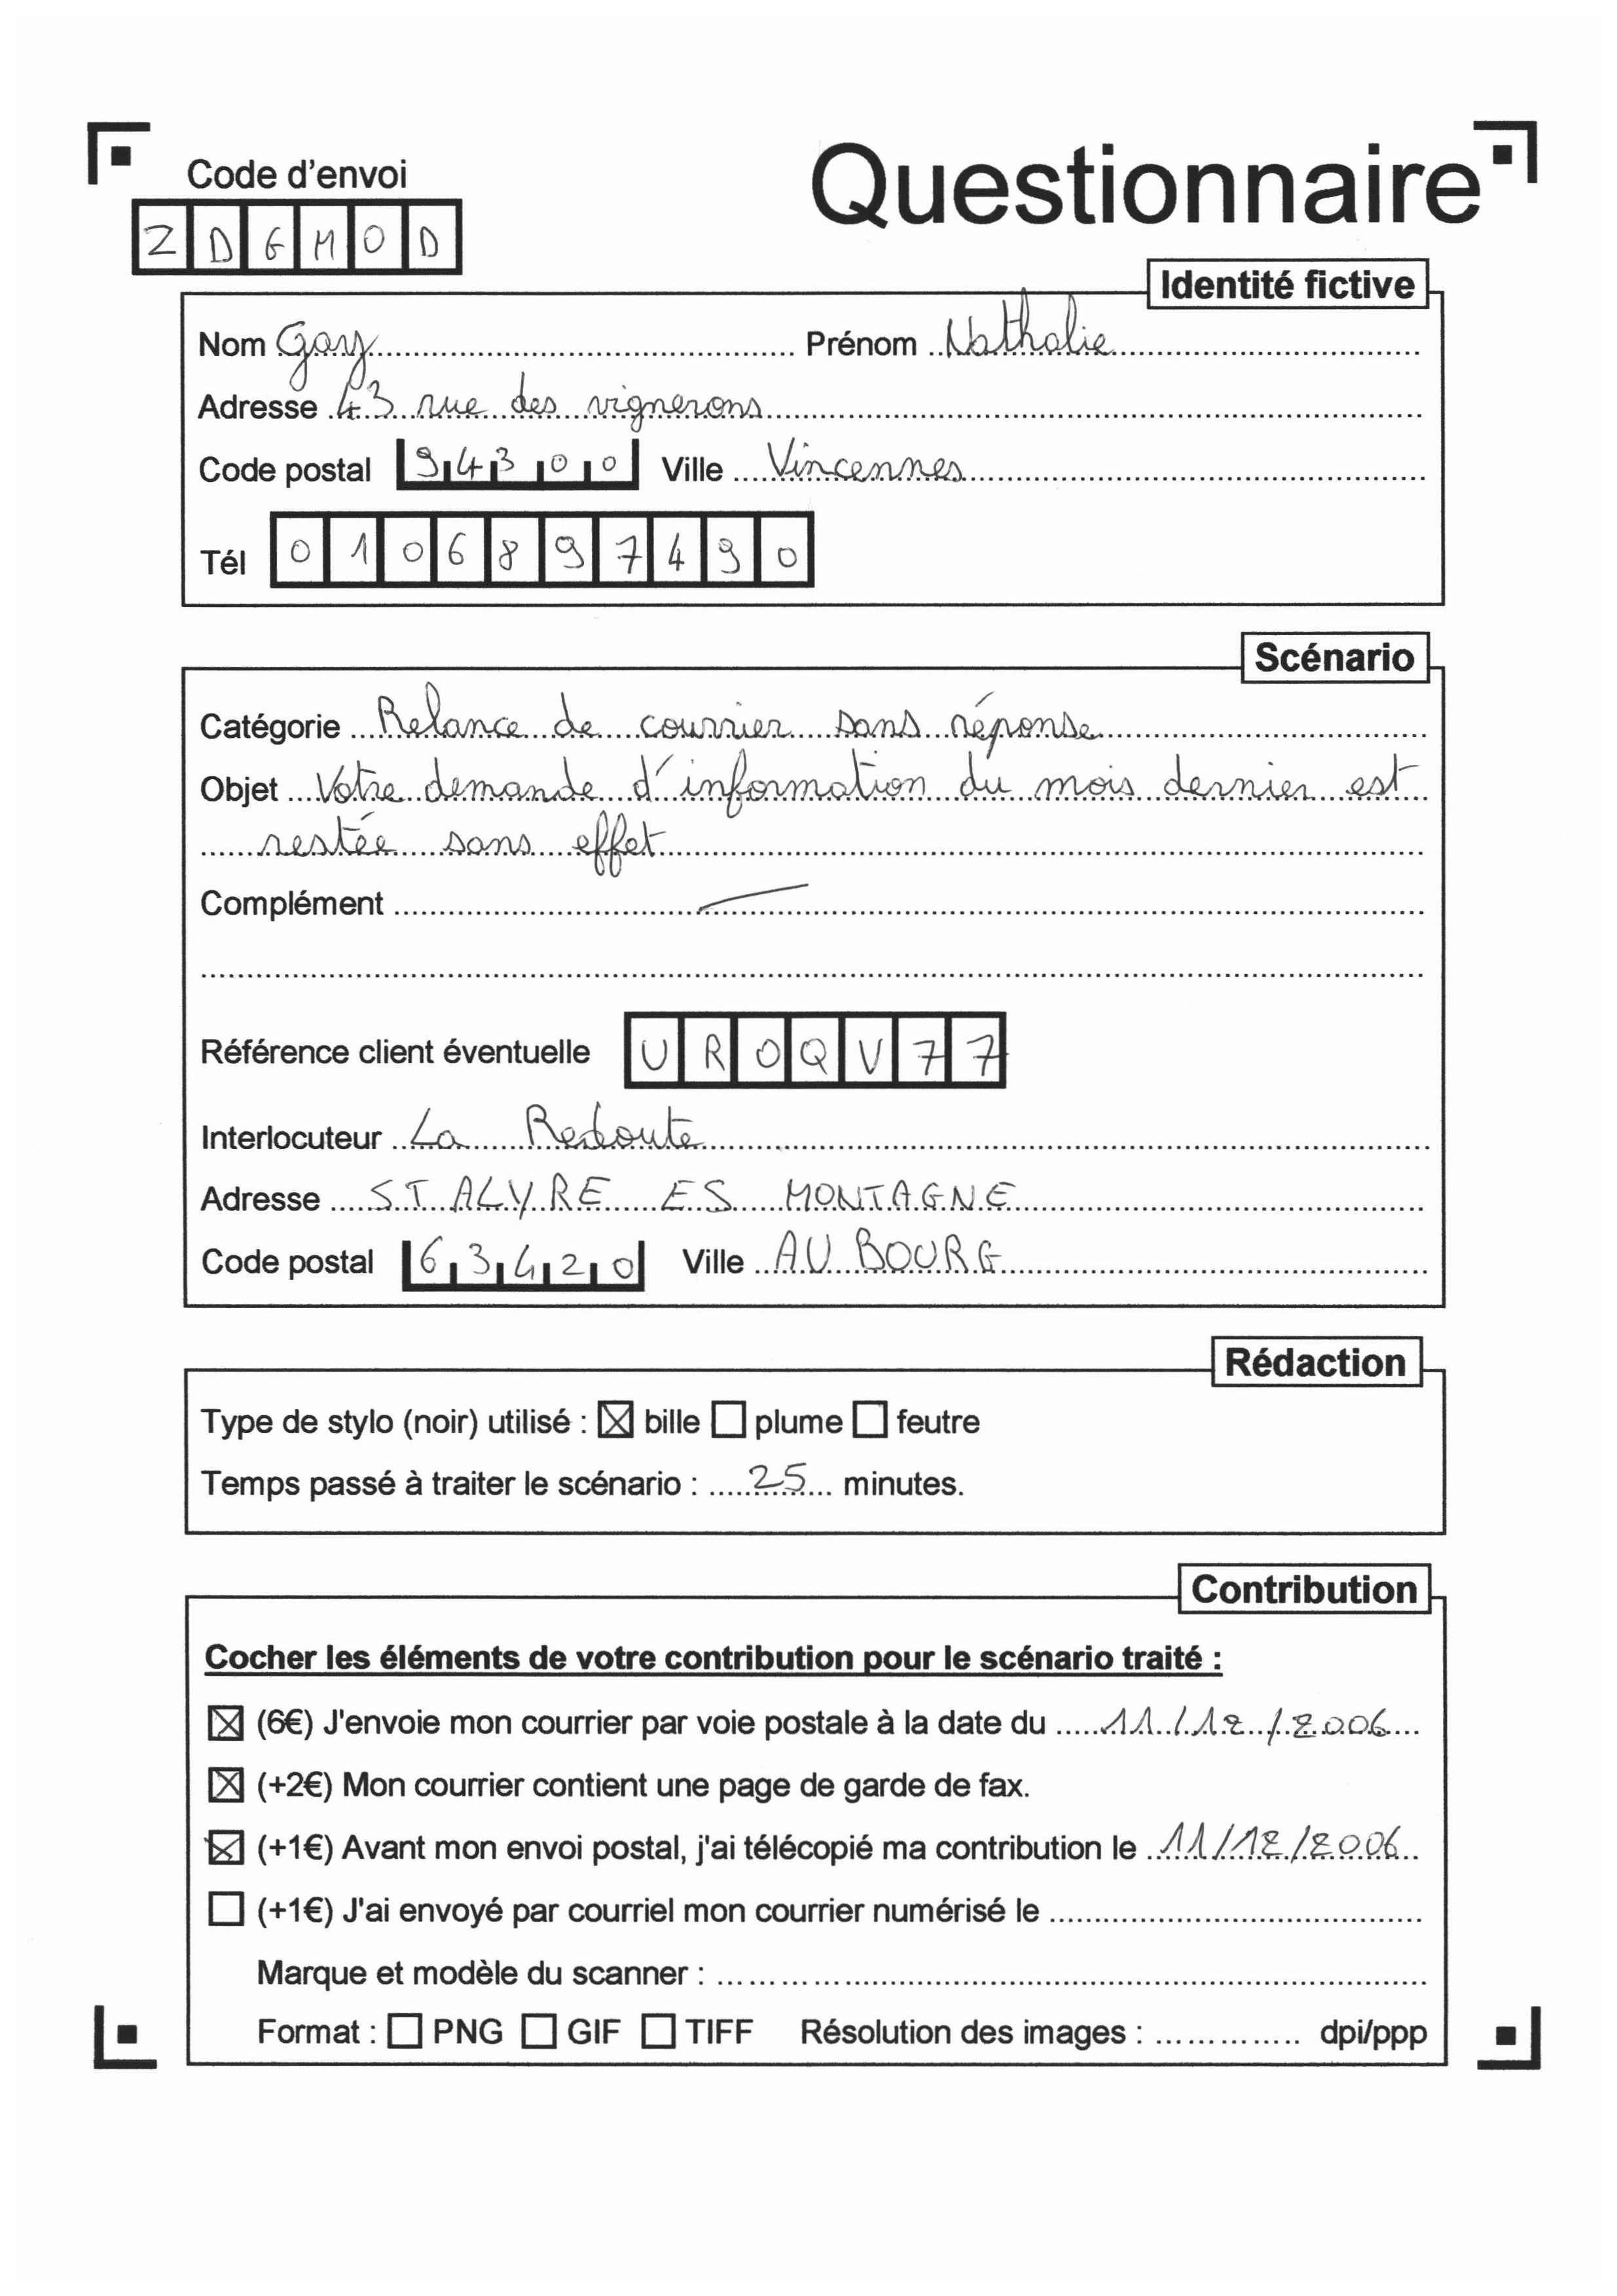 Questionnaire
Code d'envoi
ZDGMOD
Identité fictive
Nom Gay Prénom Nathalie
Adresse 43 rue des vignerons
Code postal 94300 Ville Vincennes
Tél 0106897490
Scénario
Catégorie Relance de courrier sans réponse
Objet Votre demande d'information du mois dernier est
restée sans effet
Complément
Référence client éventuelle UROQV77
Interlocuteur La Redoute
Adresse ST ALYRE ES MONTAGNE
Code postal 63420 Ville AU BOURG
Rédaction
Type de stylo (noir) utilisé : bille plume feutre
Temps passé à traiter le scénario : 25 minutes.
Contribution
Cocher les éléments de votre contribution pour le scénario traité :
(6€) J'envoie mon courrier par voie postale à la date du 11/12/2006
(+2€) Mon courrier contient une page de garde de fax.
(+1€) Avant mon envoi postal, j'ai télécopié ma contribution le 11/12/2006
(+1€) J'ai envoyé par courriel mon courrier numérisé le
Marque et modèle du scanner :
Format : PNG GIF TIFF Résolution des images : dpi/ppp